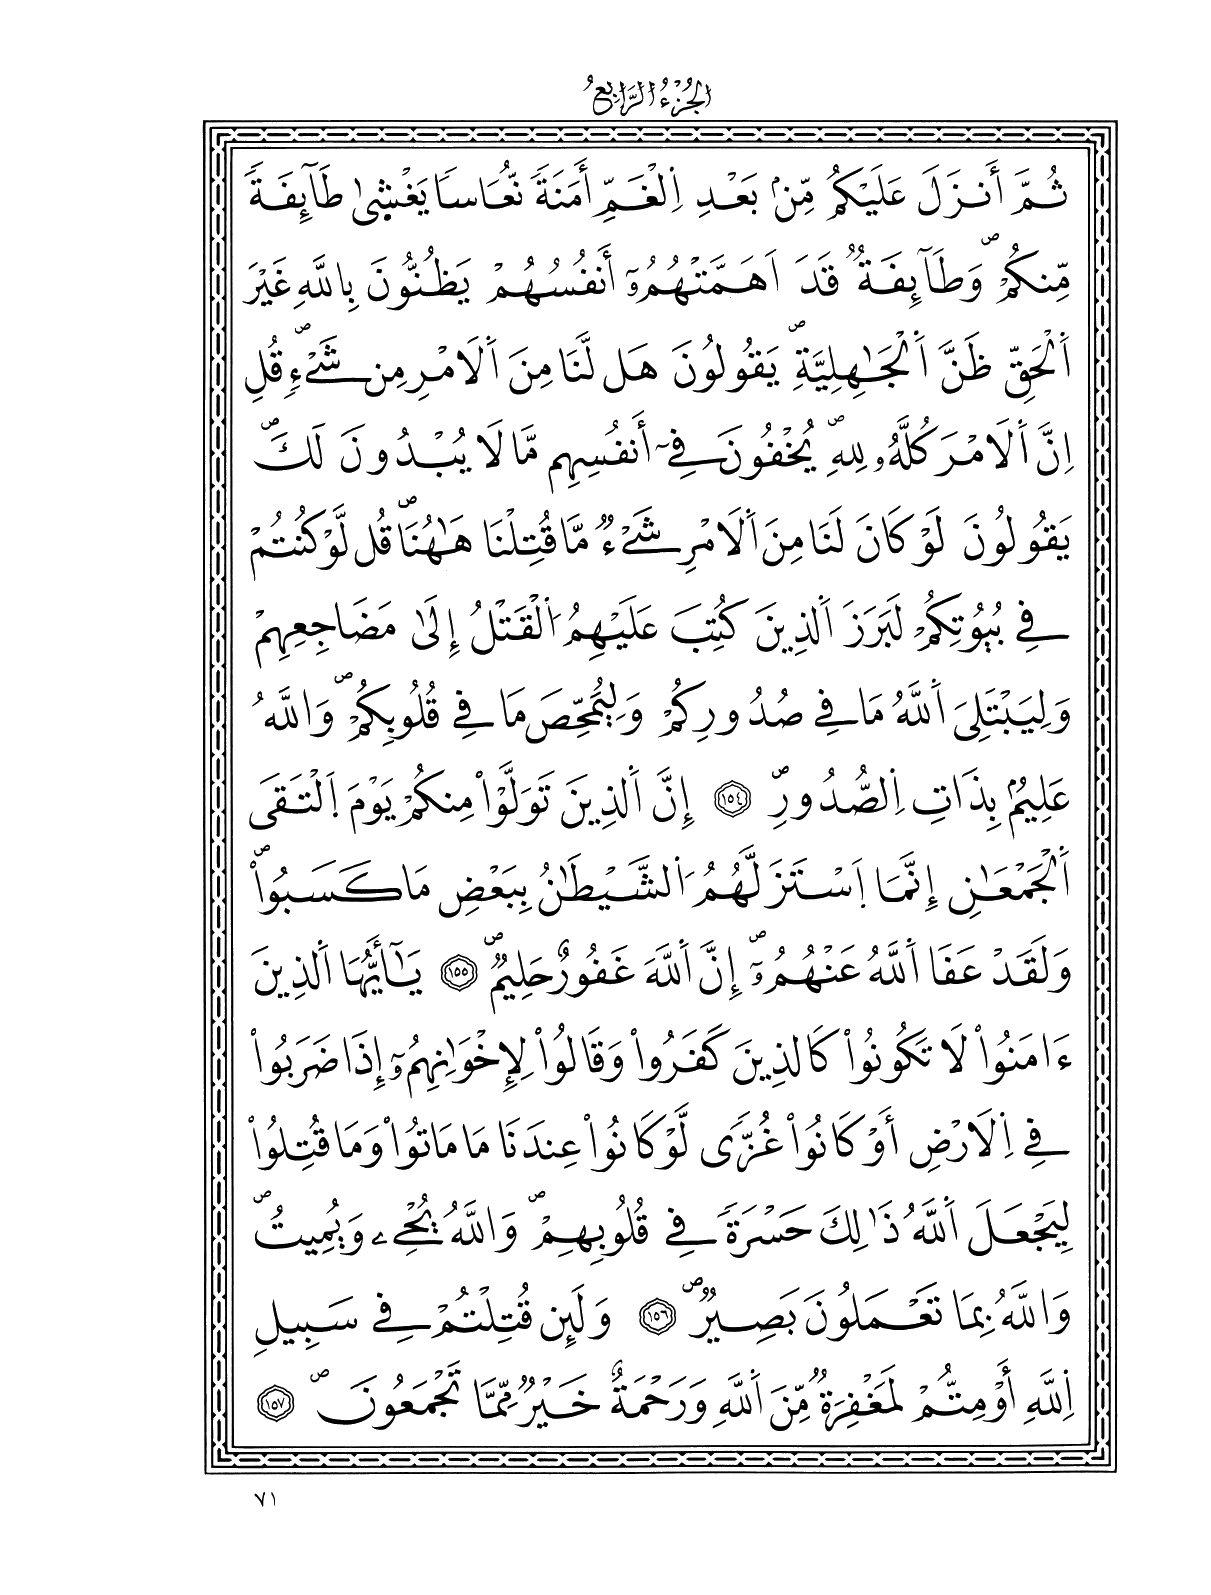 الجُزْءُ الرَّابِعُ
ثُمَّ أَنزَلَ عَلَيْكُم مِّنۢ بَعْدِ اِ۬لْغَمِّ أَمَنَةٗ نُّعَاساٗ يَغْشِىٰ طَآئِفَةٗ
مِّنكُمْۖ وَطَآئِفَةٞ قَدَ اَهَمَّتْهُمُۥٓ أَنفُسُهُمْ يَظُنُّونَ بِاللَّهِ غَيْرَ
اَ۬لْحَقِّ ظَنَّ اَ۬لْجَٰهِلِيَّةِۖ يَقُولُونَ هَل لَّنَا مِنَ اَ۬لَامْرِ مِن شَےْءٖۖ قُلِ
اِنَّ اَ۬لَامْرَ كُلَّهُۥ لِلهِۖ يُخْفُونَ فِےٓ أَنفُسِهِم مَّا لَا يُبْدُونَ لَكَۖ
يَقُولُونَ لَوْ كَانَ لَنَا مِنَ اَ۬لَامْرِ شَےْءٞ مَّا قُتِلْنَا هَٰهُنَاۖ قُل لَّوْ كُنتُمْ
فِے بُيُوتِكُمْ لَبَرَزَ اَ۬لذِينَ كُتِبَ عَلَيْهِمُ اُ۬لْقَتْلُ إِلَىٰ مَضَاجِعِهِمْ
وَلِيَبْتَلِىَ اَ۬للَّهُ مَا فِے صُدُورِكُمْ وَلِيُمَحِّصَ مَا فِے قُلُوبِكُمْۖ وَاللَّهُ
عَلِيمُۢ بِذَاتِ اِ۬لصُّدُورِۖ ۝١٥٤ إِنَّ اَ۬لذِينَ تَوَلَّوْاْ مِنكُمْ يَوْمَ اَ۪لْتَقَى
اَ۬لْجَمْعَٰنِ إِنَّمَا اَ۪سْتَزَلَّهُمُ اُ۬لشَّيْطَٰنُ بِبَعْضِ مَا كَسَبُواْۖ
وَلَقَدْ عَفَا اَ۬للَّهُ عَنْهُمُۥٓۖ إِنَّ اَ۬للَّهَ غَفُورٌ حَلِيمٞۖ ۝١٥٥ يَٰٓأَيُّهَا اَ۬لذِينَ
ءَامَنُواْ لَا تَكُونُواْ كَالذِينَ كَفَرُواْ وَقَالُواْ لِإِخْوَٰنِهِمُۥٓ إِذَا ضَرَبُواْ
فِے اِ۬لَارْضِ أَوْ كَانُواْ غُزّٗى لَّوْ كَانُواْ عِندَنَا مَا مَاتُواْ وَمَا قُتِلُواْ
لِيَجْعَلَ اَ۬للَّهُ ذَٰلِكَ حَسْرَةٗ فِے قُلُوبِهِمْۖ وَاللَّهُ يُحْىِۦ وَيُمِيتُۖ
وَاللَّهُ بِمَا تَعْمَلُونَ بَصِيرٞۖ ۝١٥٦ وَلَئِن قُتِلْتُمْ فِے سَبِيلِ
اِ۬للَّهِ أَوْ مِتُّمْ لَمَغْفِرَةٞ مِّنَ اَ۬للَّهِ وَرَحْمَةٌ خَيْرٞ مِّمَّا تَجْمَعُونَۖ ۝١٥٧
٧١